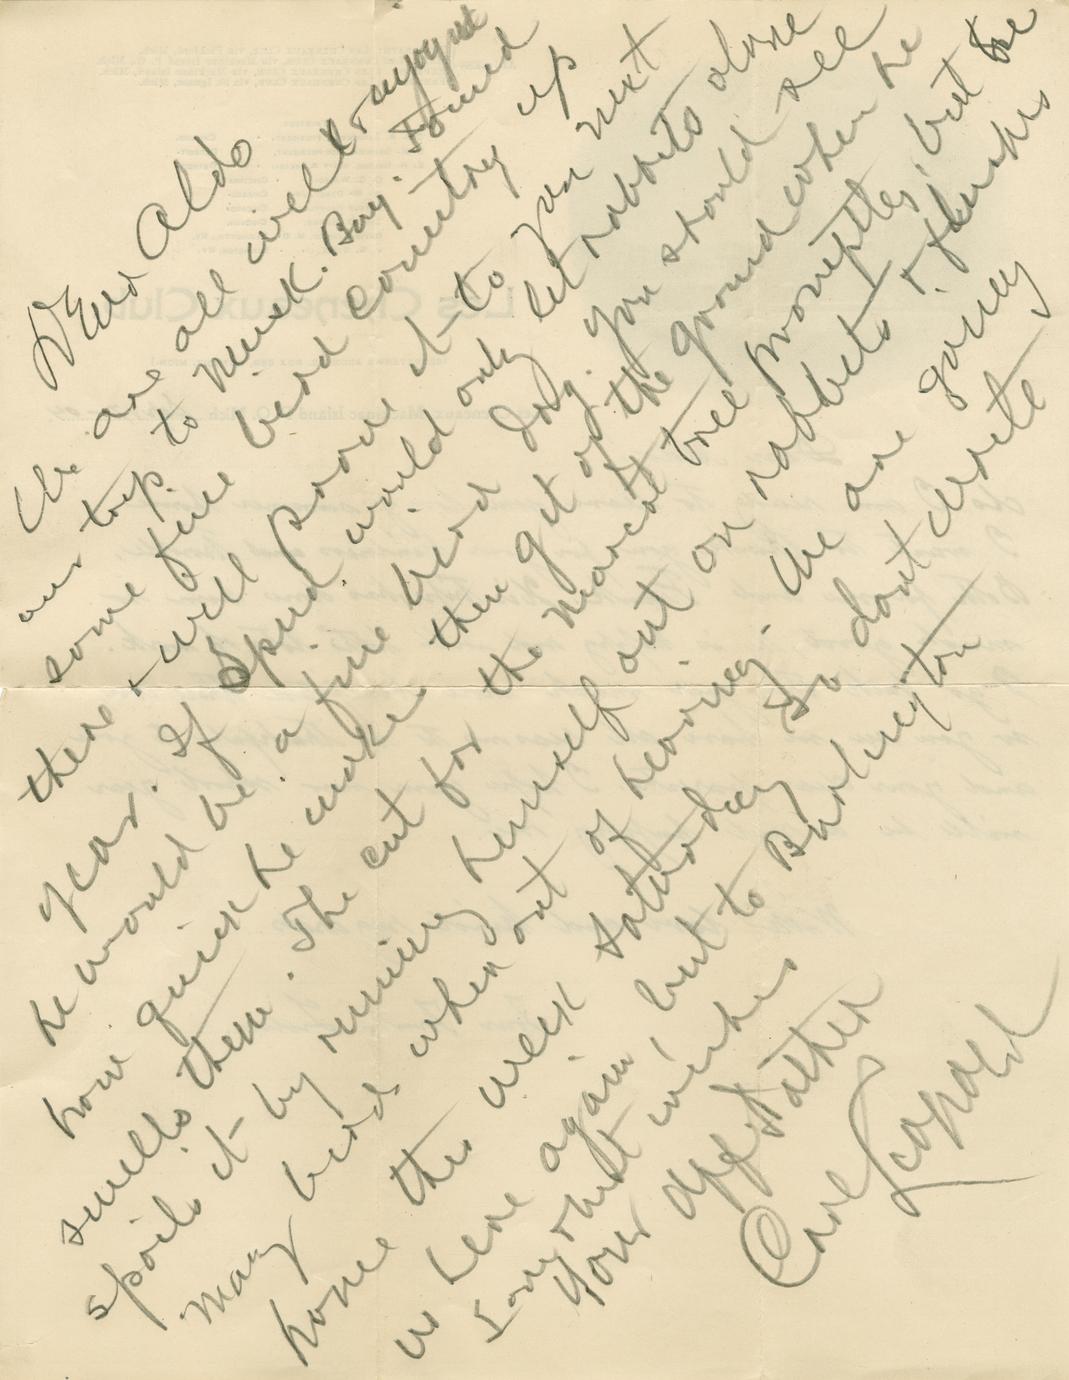 Dear Aldo
We are all well & enjoyed
our trip to Musk. Bay. Found
some fine bird country up
there & will prove it to you next
year. If Spud would only let rabbits alone
he would be a fine bird dog. You should see
how quick he makes them get off the ground when he
smells them. The cut for the nearest tree promptly, but he
spoils it by running himself out on rabbets & flushes
many birds when out of hearing. We are going
home this week Saturday So dont write
us here again, but to Burlington
wishes
Your aff father
Carl Leopold